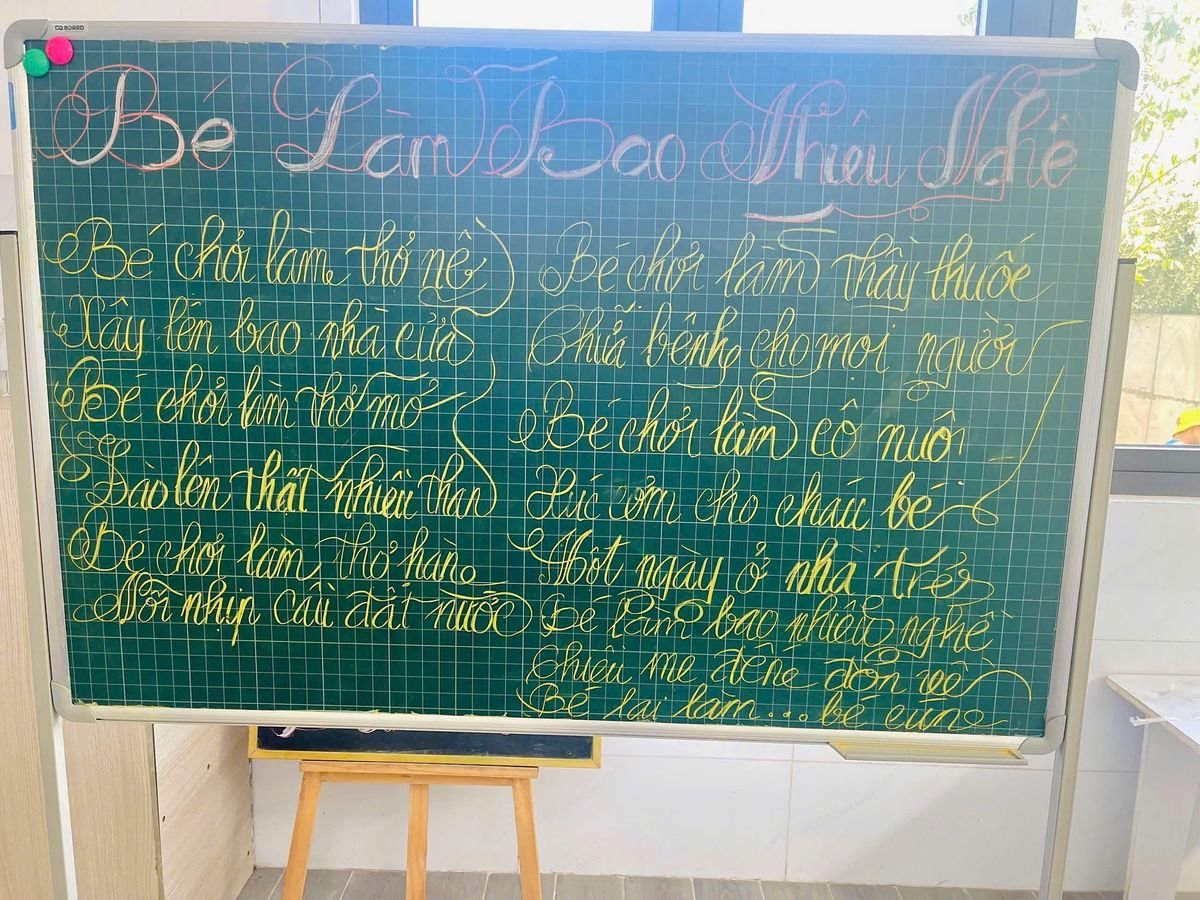 BOARD
Bé Làm Bao Nhiêu Nghề
Bé chơi làm thợ nề
Xây lên bao nhà cửa
Bé chơi làm thợ mỏ
Đào lên thật nhiều than
Bé chơi làm thợ hàn
Nối nhịp cầu đất nước
Bé chơi làm thầy thuốc
Chữa bệnh cho mọi người
Bé chơi làm cô nuôi
Xúc cơm cho cháu bé
Một ngày ở nhà trẻ
Bé làm bao nhiêu nghề
Chiều mẹ đến đón về
Bé lại làm... bé cún